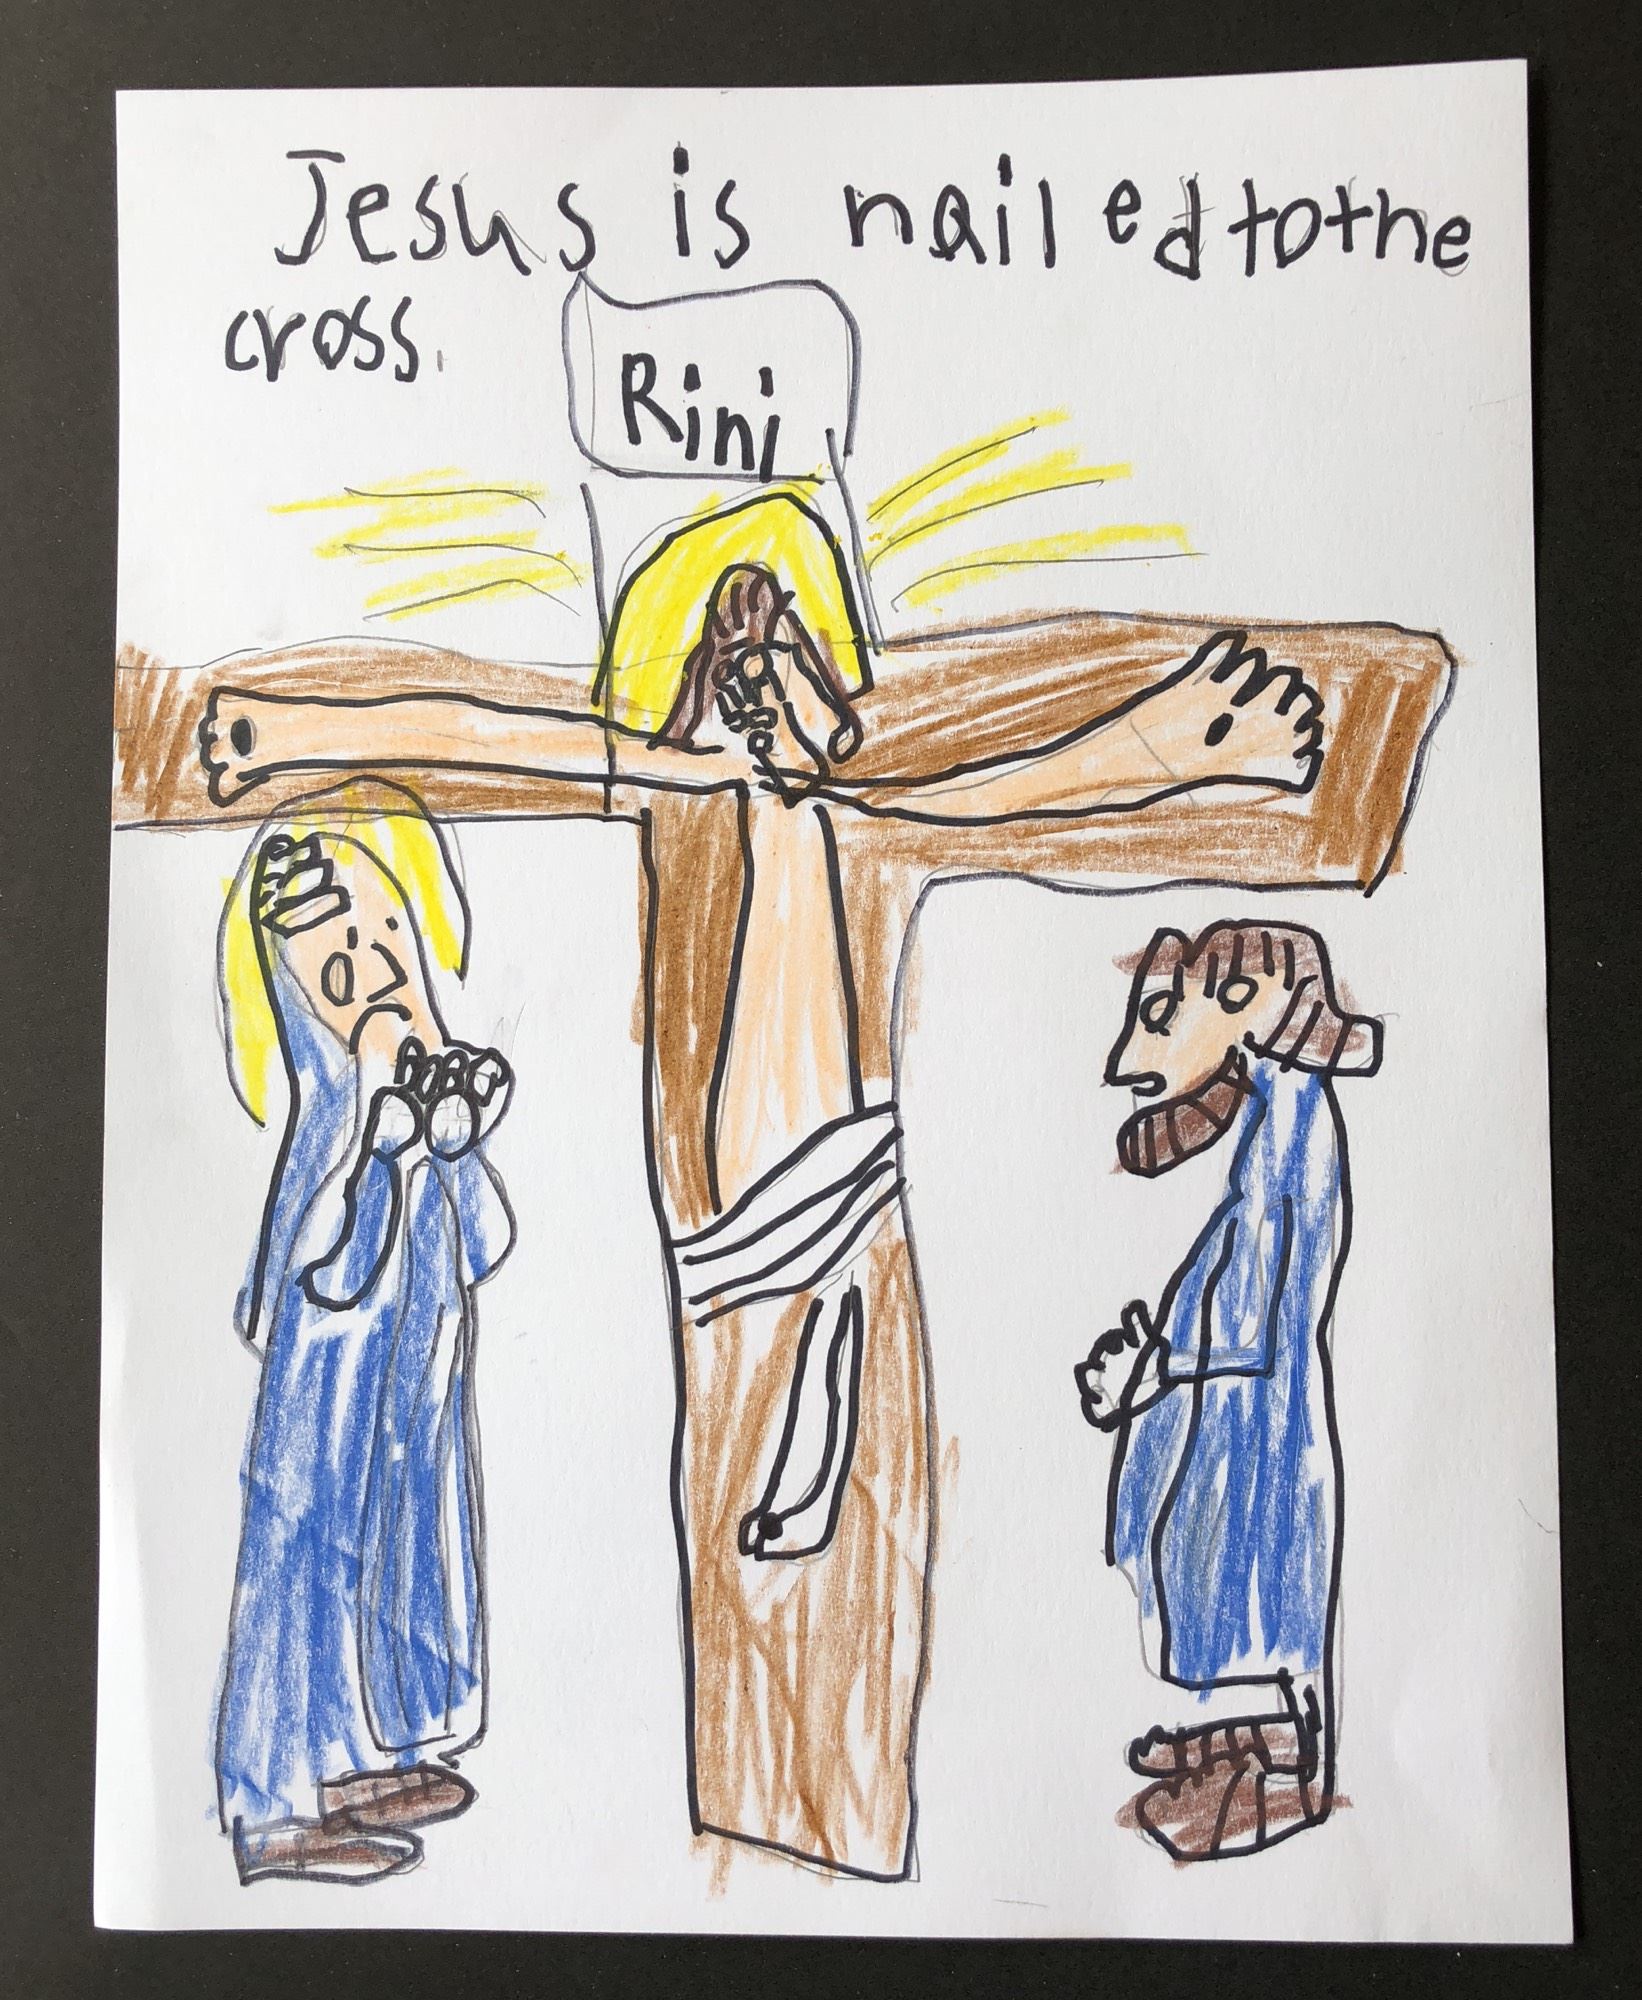 Jesus is nailed to the
cross.
Rini